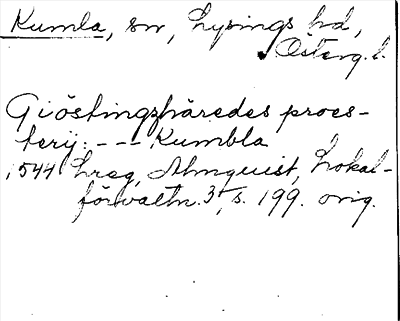 Kumla, sn, Lysings hd,
Österg. l.
Giöstingzhäredes proes-
terij: - - - Kumbla
1544 Lreg, Almquist, Lokal-
förvaltn. 3, s. 199. orig.